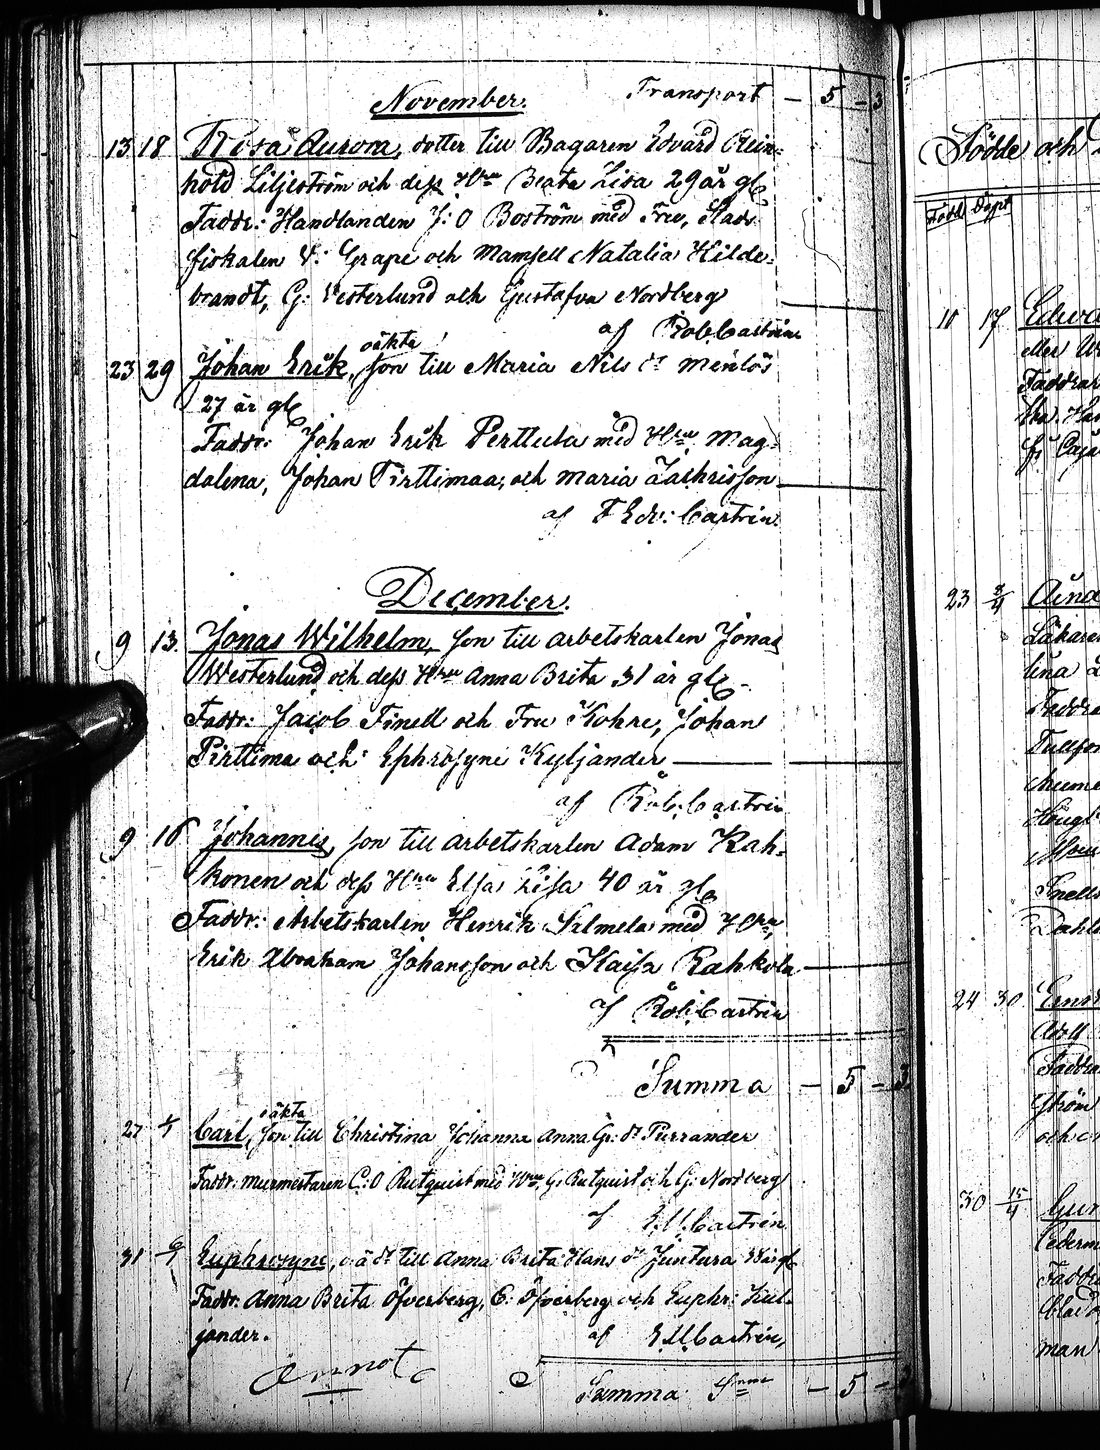 November.
Transport — 5 — 3
13 18 Rosa Aurora, dotter till Bagaren Edvard Rein-
hold Liljeström och dess Hru Beata Lisa 29 år gl
Faddr: Handlanden J: O Boström med Fru, Stads
fiskalen V: Grape och Mamsell Natalia Hilde-
brandt, G: Vesterlund och Gustafva Nordberg
af Rob. Castrén
oäkta
23 29 Johan Erik, son till Maria Nils dr Meinlös
27 år gl
Faddr: Johan Erik Perttula med Hru Mag-
dalena, Johan Pirttimaa, och Maria Zachrisson
af F Edv: Castrén
December.
9 13. Jonas Wilhelm, son till arbetskarlen Jonas
Westerlund och dess Hru Anna Brita 31 år gl
Faddr: Jacob Finell och Fru Kohre, Johan
Pirttima och Ephrosyne Kyljander
af Rob. Castrén
9 16 Johannes, son till arbetskarlen Adam Rah-
konen och dess Hru Elsa Lisa 40 år gl
Faddr: Arbetskarlen Henrik Salmela med Hru,
Erik Abraham Johansson och Kaisa Rahkola
af Rob: Castrén
Summa — 5 — 3
oäkta
27 1/1 Carl, son till Christina Johanna Anna Gr: dr Purrander
Faddr: murmestaren C: O Rutquist med Hru, G: Rutquist och G: Nordberg
af E.M. Castrén
31 6/1 Euphrosyne, o ä dr till Anna Brita Hans dr Juntura
Faddr: Anna Brita Öfverberg, C: Öfverberg och Euphr: Kil-
jander.
af E M Castrén,
Annot
Summa Smma — 5 —
Födde och
Född Döpt
11 17 Edva
eller
Faddrar
23 3/4 Aina
Läkare
lina
Faddra
24 30 Ernst
Adolf
Faddra
ström
och
30 15/4
Faddra
man